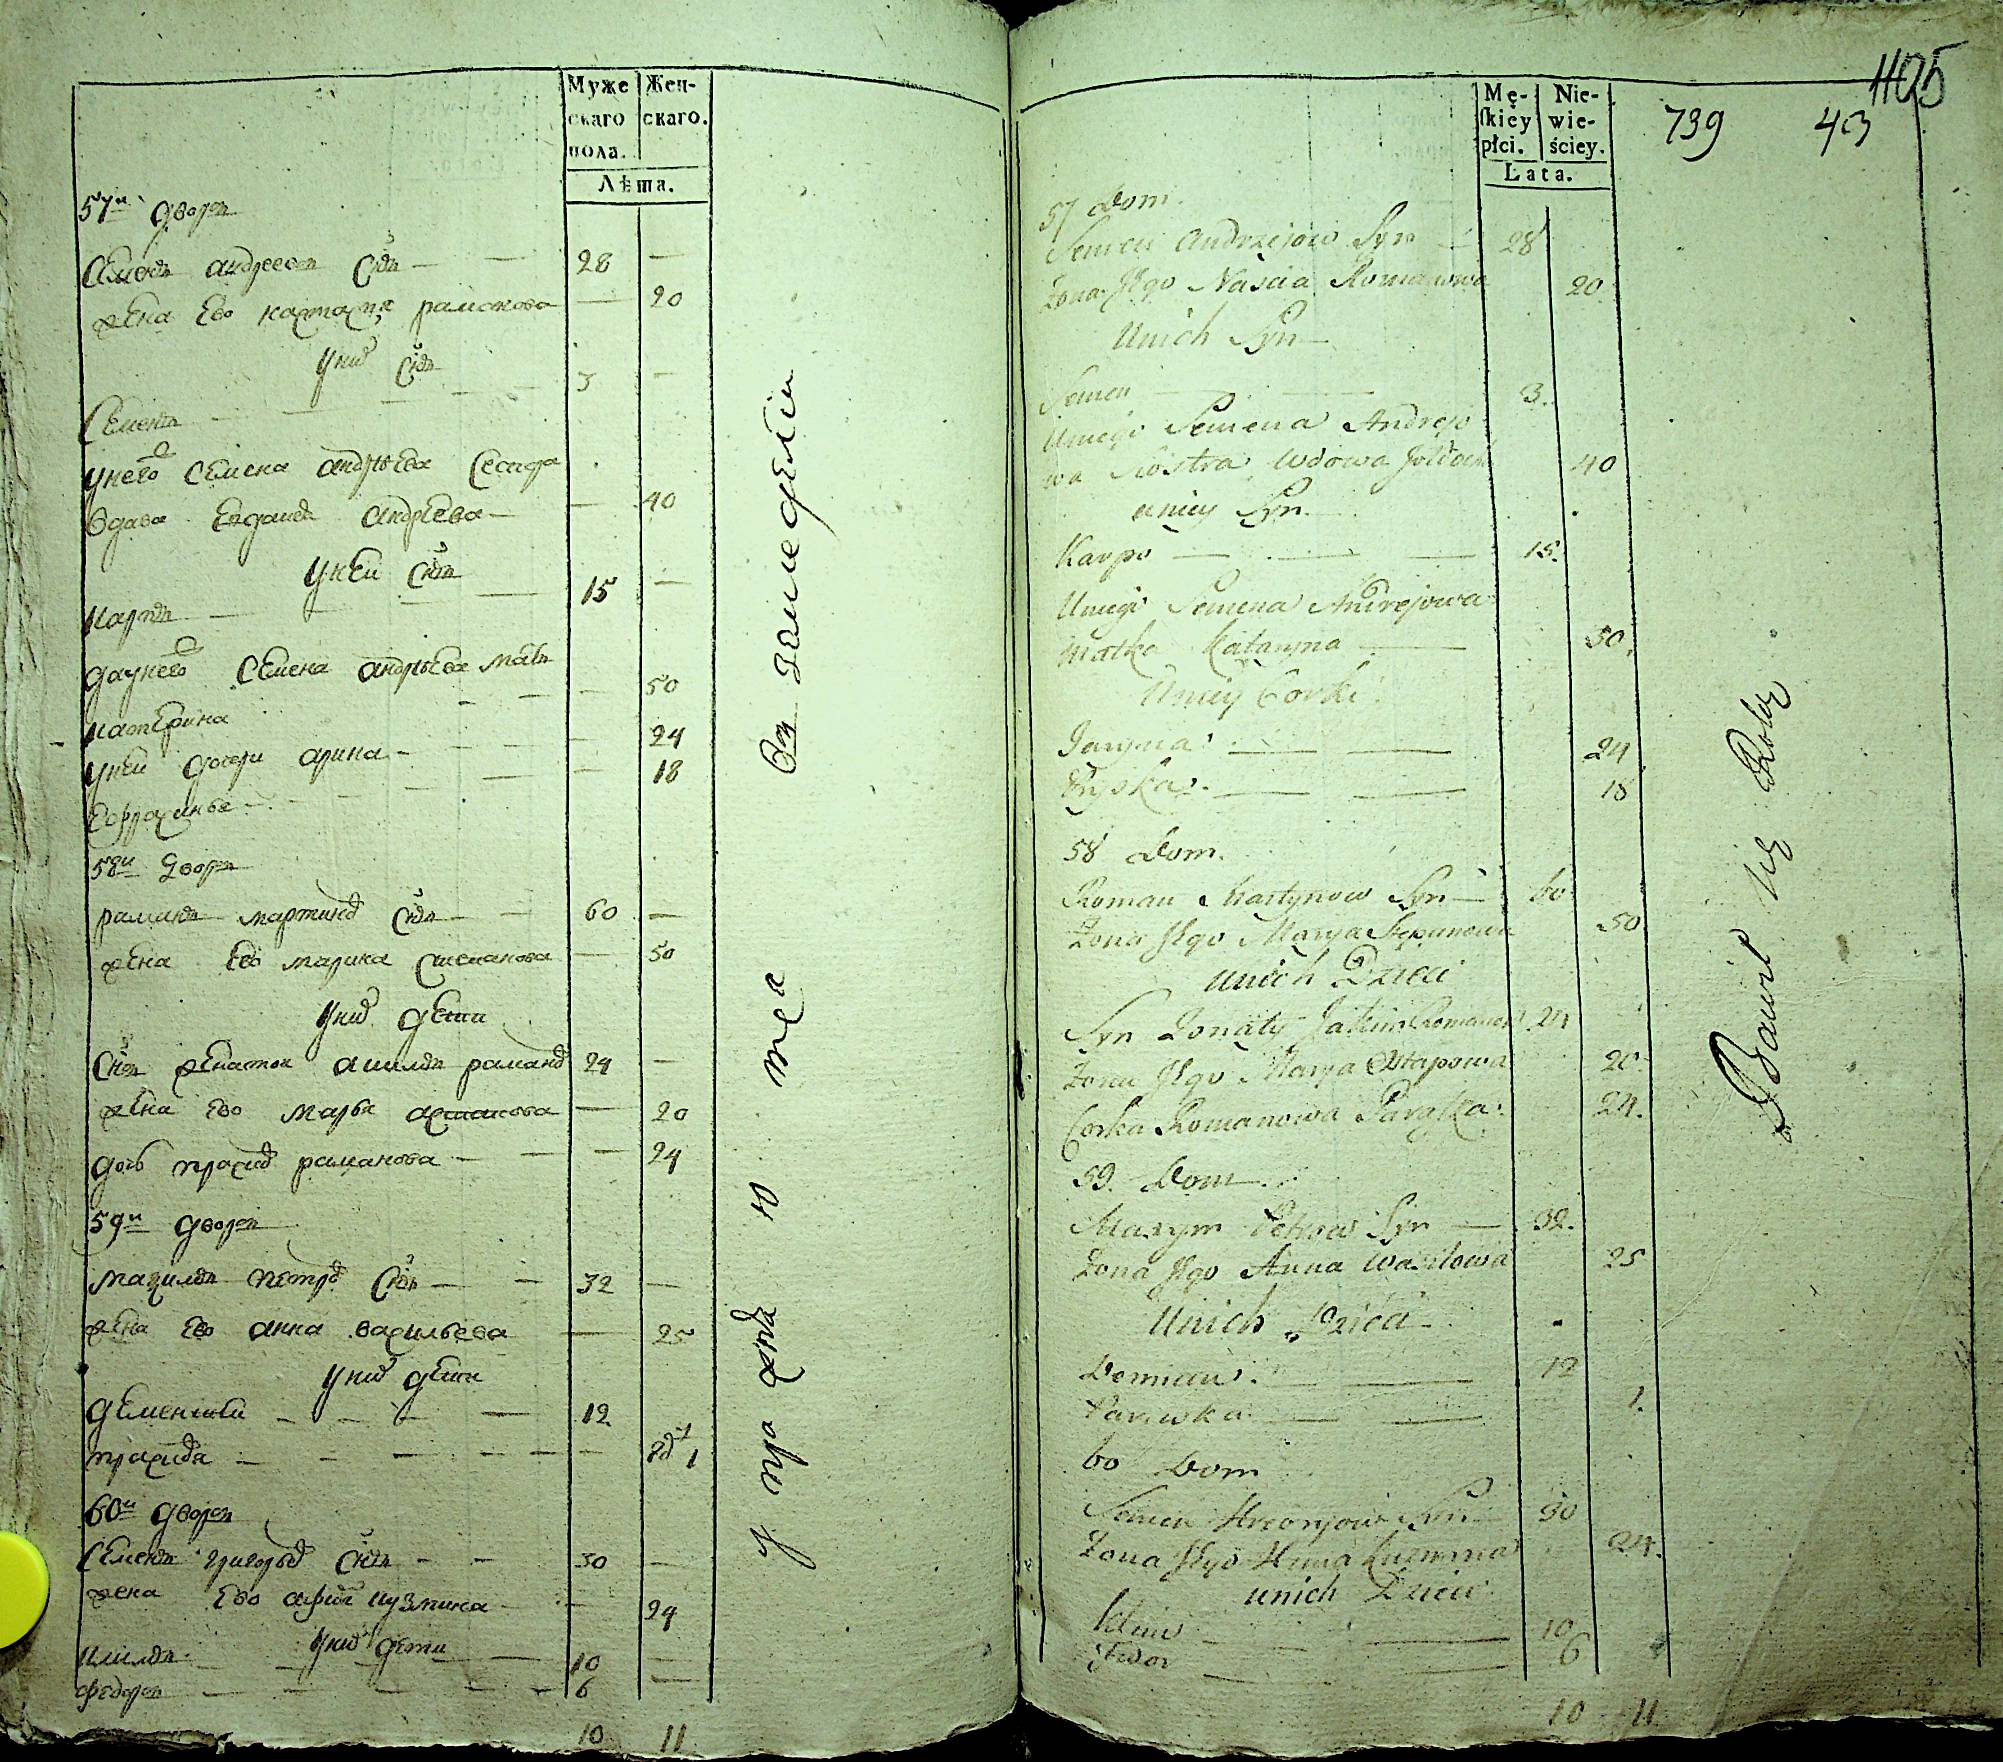 Муже
скаго
пола.
Жен-
скаго.
Лѣта.
57й дворъ
Семенъ андреевъ сынъ — — 28 —
жена Ево настася раманова — 20
У них сынъ
Семенъ — — 3 —
У нево Семена андрѣева сестра
вдава Евдакея андрѣева — — 40
У ней сынъ
Карпъ — — 15 —
Да у нево Семена андрѣева мать
катерина — — 50
У ней дочери арина — — 24
Ефрасинья — — 18
58й дворъ
раманъ мартинов сынъ — 60 —
жена Ево марина степанова — 50
У них дети
Сынъ женатои акимъ раманов 24 —
жена Ево марья астапова — 20
дочь праско раманова — — 24
59й дворъ
Мазимъ петров сынъ — — 32 —
жена Ево анна васильева — 25
У них дети
дементеи — — 12 —
праскова — — 1
60й дворъ
Семенъ григорьев сынъ — — 30 —
жена Ево кузмина — 24
У них дети
климъ — — 10 —
федоръ — — 6 —
10 11
упра жня ю тса въ земледелiи
Mę-
ſkiey
płci.
Nie-
wie-
ściey.
Lata.
1105
739 43
57 Dom.
Semen Andrzeiow Syn — 28
Żona Jego Nascia Romanowa 20.
Unich Syn —
Semen — — 3.
Uniego Semena Andrejo
wa Siostra Wdowa 40
uniey Syn.
Karpo — — — 15.
Uniego Semena Andrejowa
Matka Kataryna — 50.
Uniey Corki
Jaryna — — 24
Pryska — — 18
58 Dom.
Roman Martynow Syn — 60
Żona Jego Marya Stepanowa 50
Unich Dzieci
Syn Żonaty Jakim Romanow 24
Żona Jego Marya Ostapowa 20.
Corka Romanowa Paraska 24.
59. Dom.
Maxym Petrow Syn — 32.
Żona Jego Anna Wasilowa 25
Unich Dzieci
Demian — — 12
Parawka — — 1.
60 Dom
Semen Hreoryow Syn — 30
Żona Jego Kuzmina 24.
unich Dzieci
Klim — — 10
Fedor — — 6
10 11
Bawił się Rolą